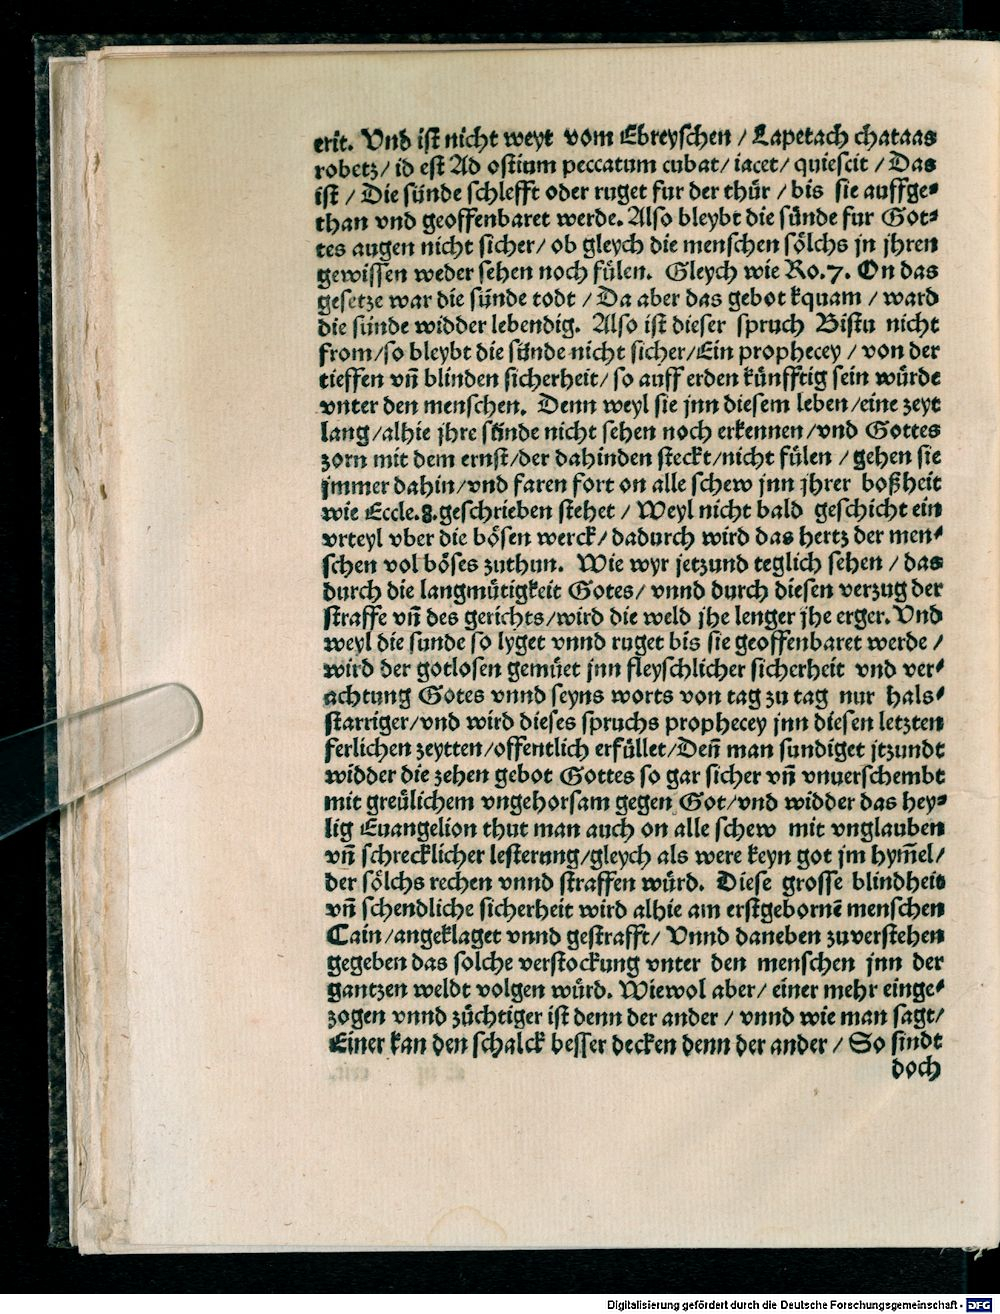 erit. Vnd ist nicht weyt vom Ebreyschen / Lapetach chataas
robetz / id est Ad ostium peccatum cubat / iacet / quiescit / Das
ist / Die sünde schlefft oder ruget fur der thür / bis sie auffge⸗
than vnd geoffenbaret werde. Also bleybt die sünde fur Got⸗
tes augen nicht sicher / ob gleych die menschen sölchs jn jhren
gewissen weder sehen noch fülen. Gleych wie Ro. 7. On das
gesetze war die sünde todt / Da aber das gebot kquam / ward
die sünde widder lebendig. Also ist dieser spruch Bistu nicht
from / so bleybt die sünde nicht sicher / Ein prophecey / von der
tieffen vn̄ blinden sicherheit / so auff erden künfftig sein würde
vnter den menschen. Denn weyl sie jnn diesem leben / eine zeyt
lang / alhie jhre sünde nicht sehen noch erkennen / vnd Gottes
zorn mit dem ernst / der dahinden steckt / nicht fülen / gehen sie
jmmer dahin / vnd faren fort on alle schew jnn jhrer boßheit
wie Eccle. 8. geschrieben stehet / Weyl nicht bald geschicht ein
vrteyl vber die bösen werck / dadurch wird das hertz der men⸗
schen vol böses zuthun. Wie wyr jetzund teglich sehen / das
durch die langmütigkeit Gotes / vnnd durch diesen verzug der
straffe vn̄ des gerichts / wird die weld jhe lenger jhe erger. Vnd
weyl die sunde so lyget vnnd ruget bis sie geoffenbaret werde /
wird der gotlosen gemüet jnn fleyschlicher sicherheit vnd ver⸗
achtung Gotes vnnd seyns worts von tag zu tag nur hals⸗
starriger / vnd wird dieses spruchs prophecey jnn diesen letzten
ferlichen zeytten / offentlich erfüllet / Den̄ man sundiget jtzundt
widder die zehen gebot Gottes so gar sicher vn̄ vnuerschembt
mit greülichem vngehorsam gegen Got / vnd widder das hey⸗
lig Euangelion thut man auch on alle schew mit vnglauben
vn̄ schrecklicher lesterung / gleych als were keyn got jm hym̄el /
der sölchs rechen vnnd straffen würd. Diese grosse blindheit
vn̄ schendliche sicherheit wird alhie am erstgebornē menschen
Cain / angeklaget vnnd gestrafft / Vnnd daneben zuverstehen
gegeben das solche verstockung vnter den menschen jnn der
gantzen weldt volgen würd. Wiewol aber / einer mehr einge⸗
zogen vnnd züchtiger ist denn der ander / vnnd wie man sagt /
Einer kan den schalck besser decken denn der ander / So sindt
doch
Digitalisierung gefördert durch die Deutsche Forschungsgemeinschaft - DFG